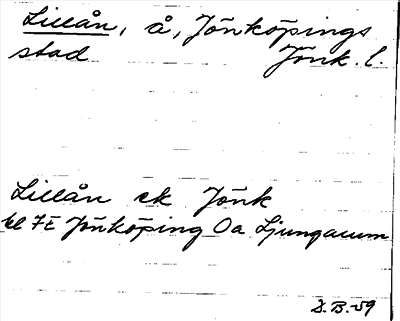 Lillån, å, Jönköpings
stad Jönk. l.
Lillån ek Jönk
bl 7E Jönköping Oa Ljungarum
D.B.-59